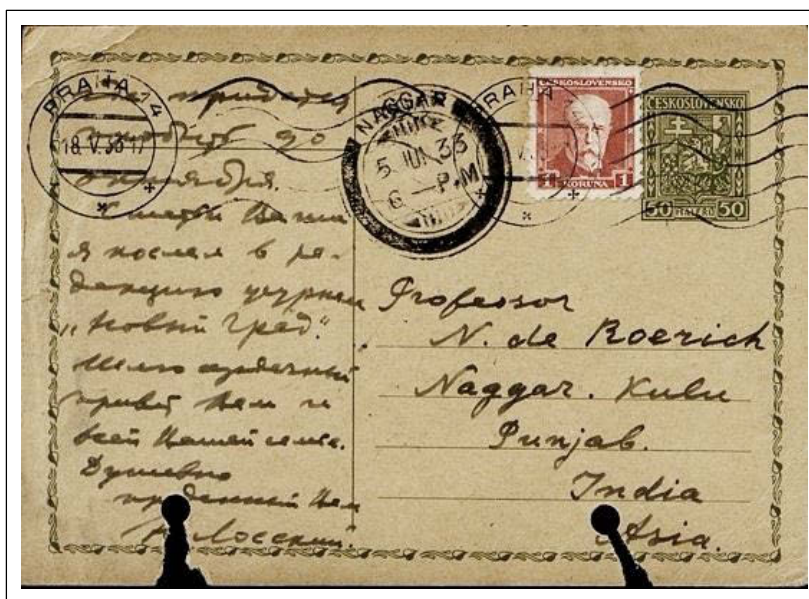 PRAHA 14
18. V. 33 17
NAGGAR
5 JUN. 33
6 — P.M
PRAHA
ČESKOSLOVENSKO
1 KORUNA 1
ČESKOSLOVENSKO
50 HALÉŘŮ 50
придется
до
сентября.
Статьи Ваши
я послал в ре-
дакцию журнала
„Новый Град“.
Шлю сердечный
привет Вам и
всей Вашей семье.
Душевно
преданный Вам
Н. Лосский.
Professor
N. de Roerich
Naggar. Kulu
Punjab.
India
Asia.